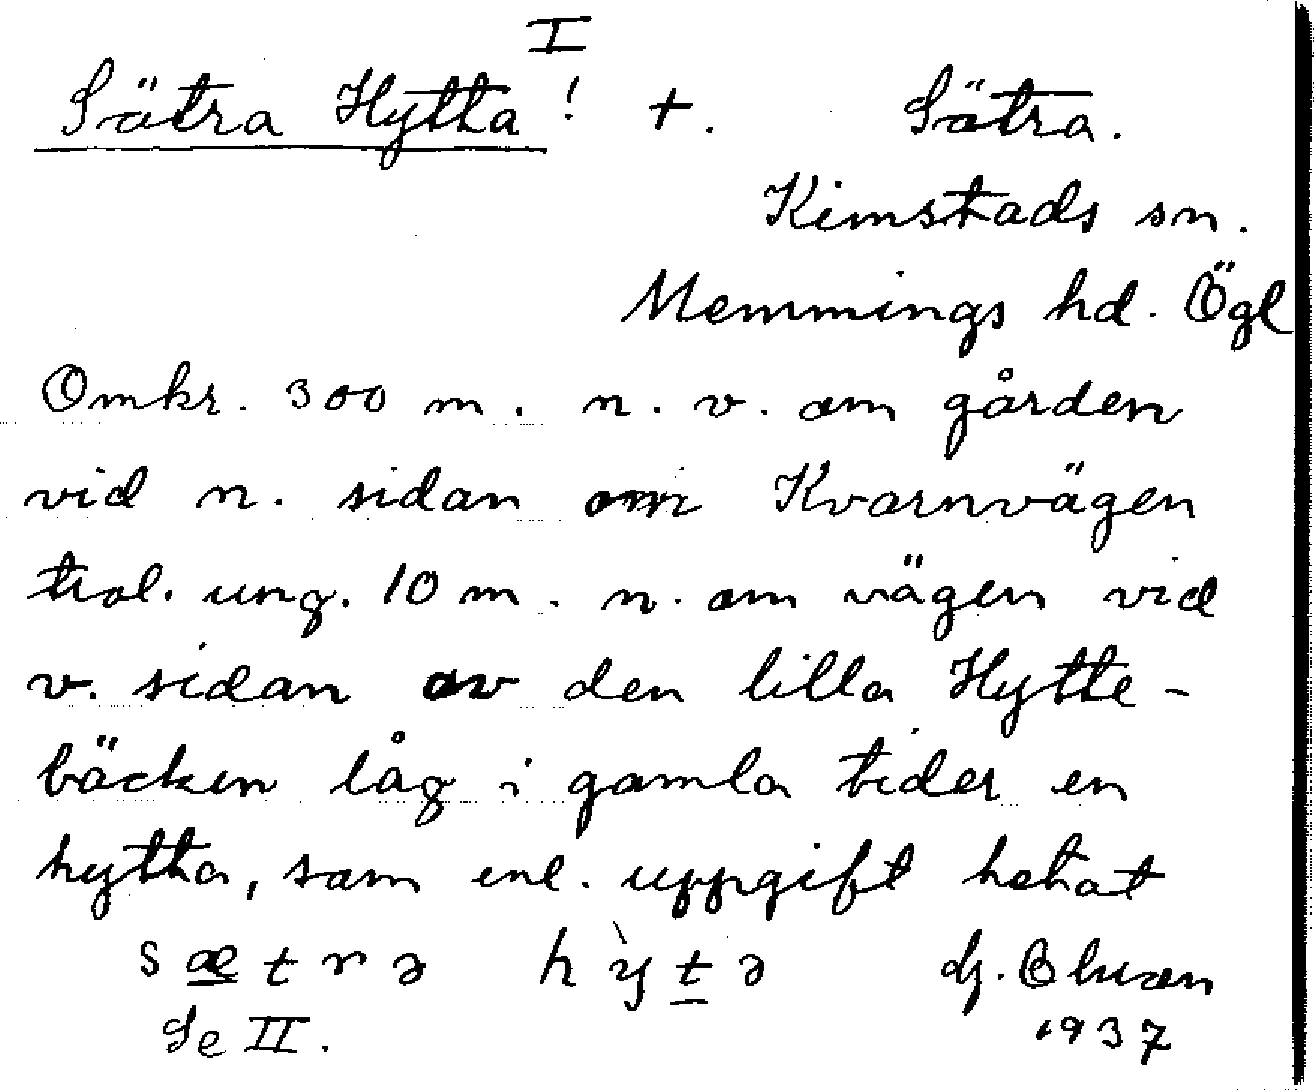 I
Sätra Hytta! +. Sätra.
Kimstads sn.
Memmings hd. Ögl
Omkr. 300 m. n. v. om gården
vid n. sidan om Kvarnvägen
trol. ung. 10 m. n. om vägen vid
v. sidan av den lilla Hytte-
bäcken låg i gamla tider en
hytta, som enl. uppgift hetat
sætrə hỳtə
Se II. 1937